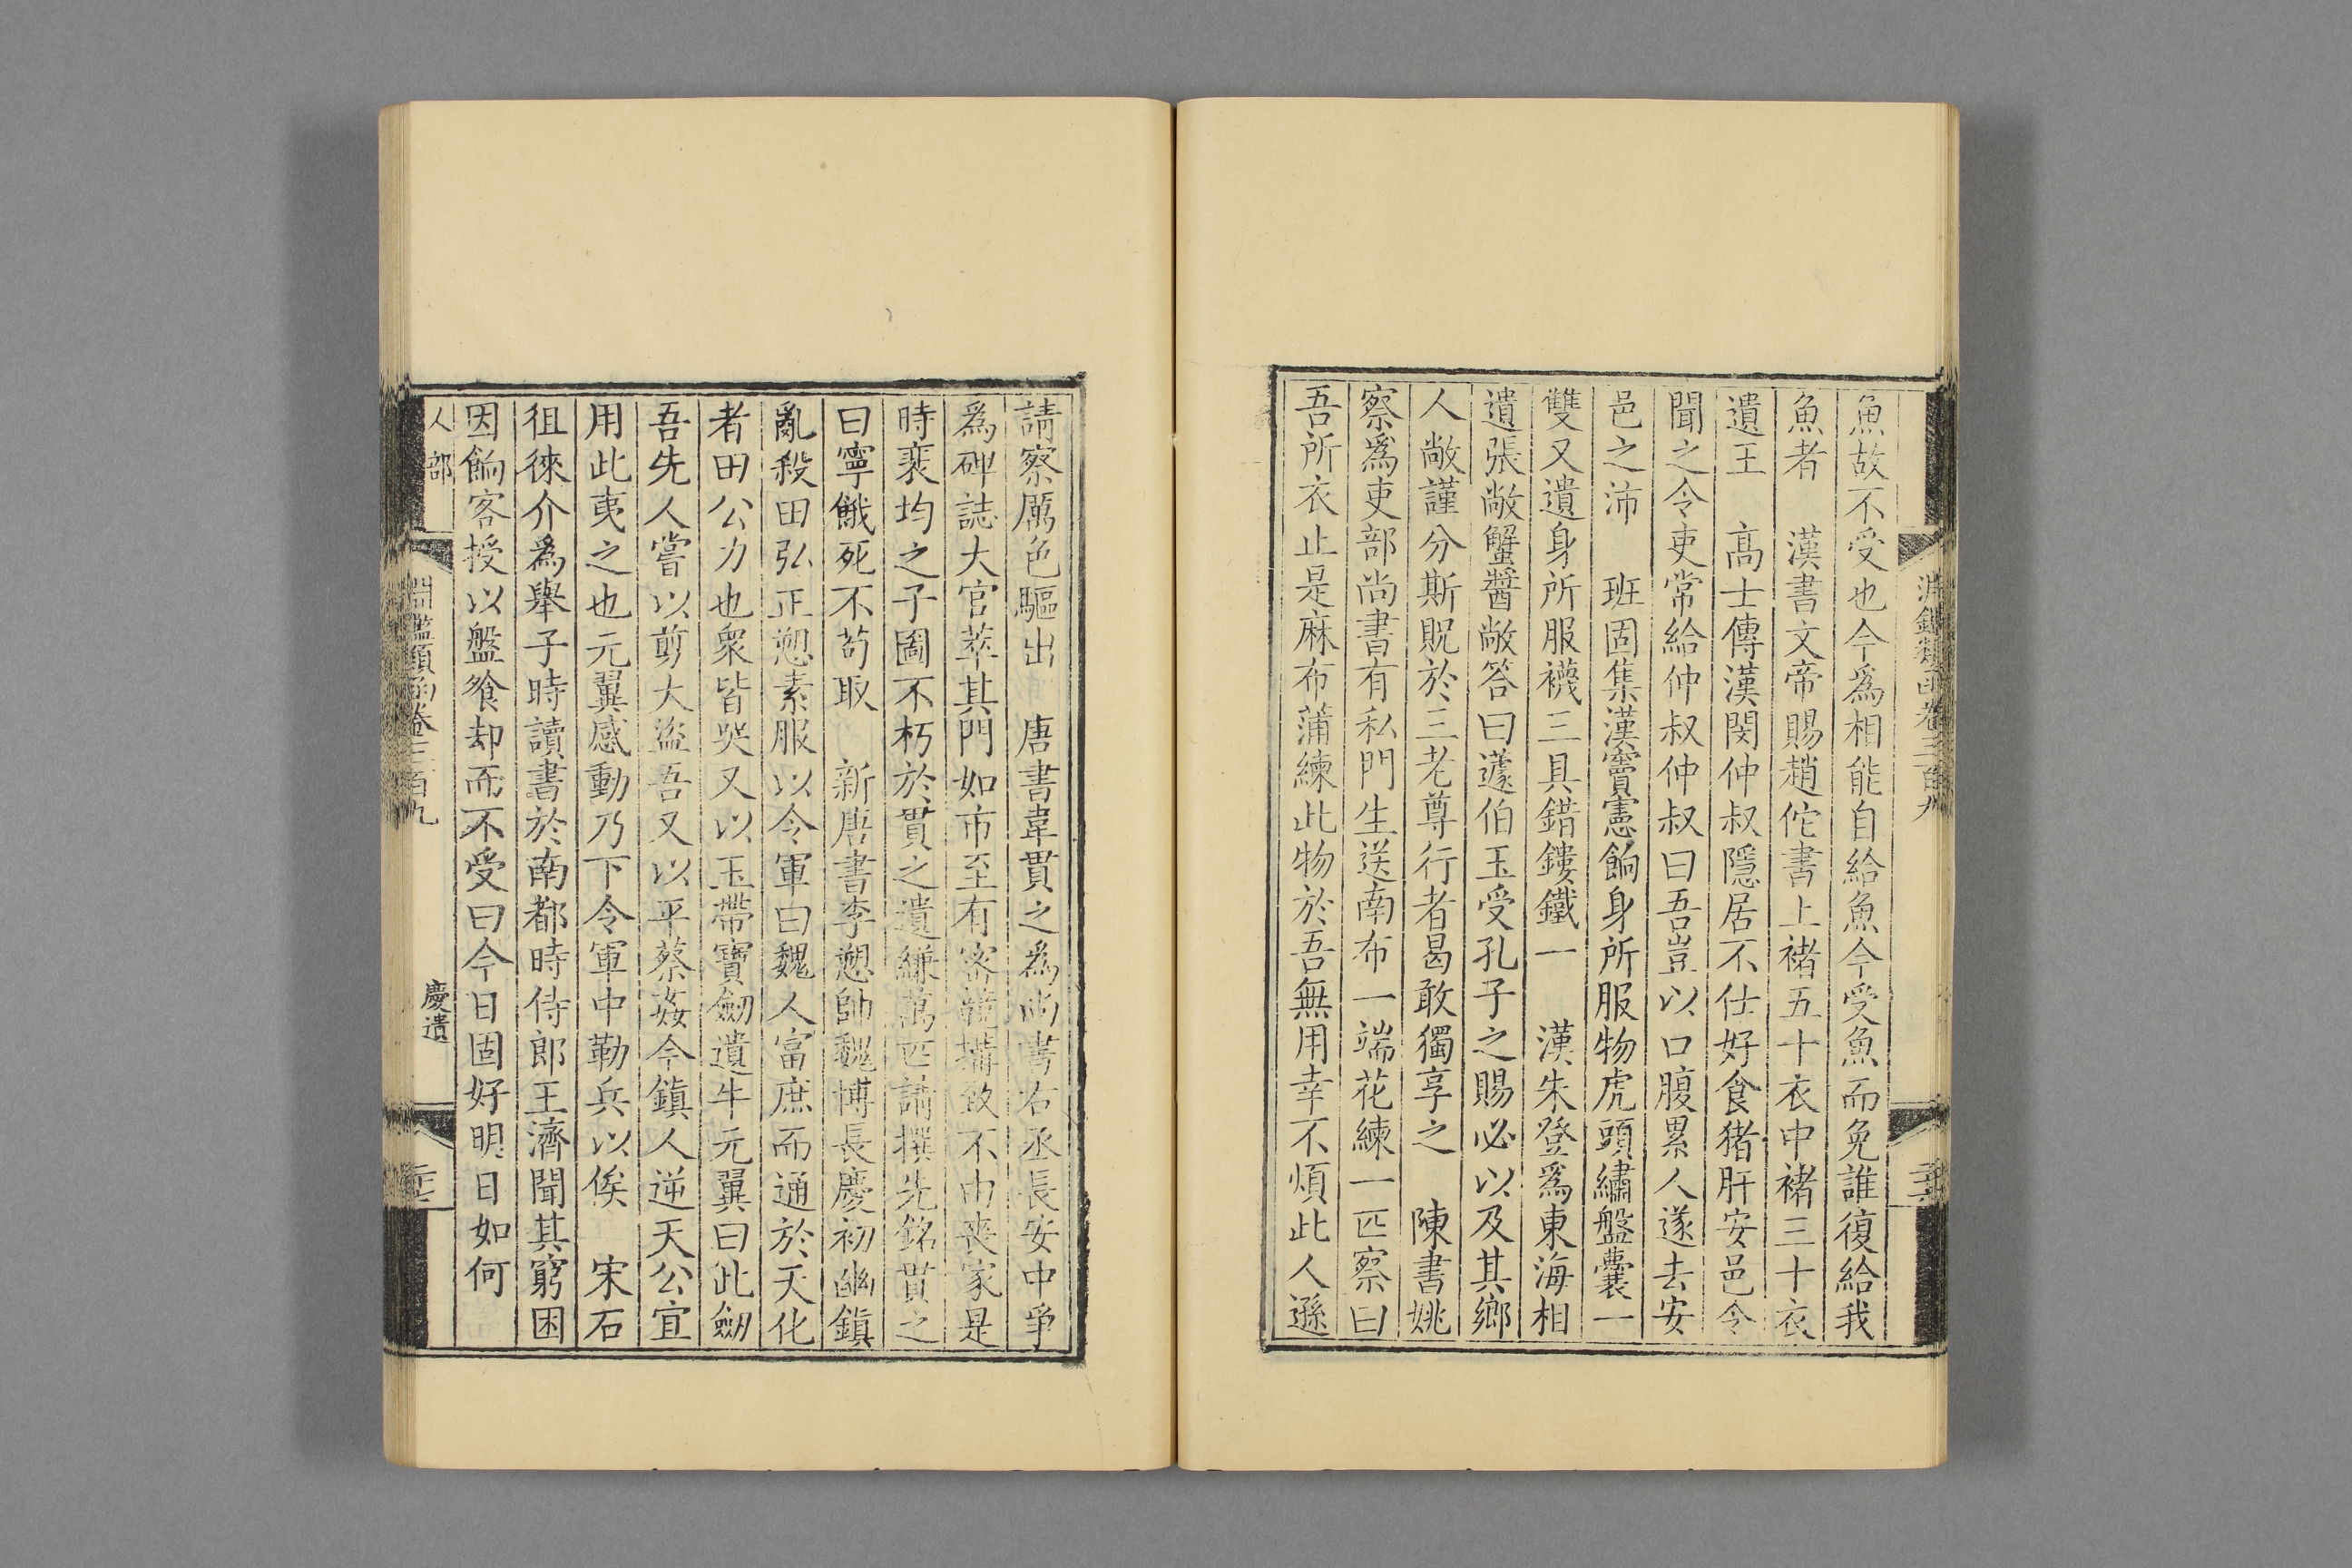 淵鑑類函卷三百九
魚故不受也今為相能自給魚今受魚而免誰復給我
魚者　漢書文帝賜趙佗書上褚五十衣中褚三十衣
遺王　高士傳漢閔仲叔隱居不仕好食猪肝安邑令
聞之令吏常給仲叔仲叔曰吾豈以口腹累人遂去安
邑之沛　班固集漢竇憲餉身所服物虎頭繡盤囊一
雙又遺身所服襪三具錯鏤鐵一　漢朱登爲東海相
遺張敞蟹醬敞答曰蘧伯玉受孔子之賜必以及其鄉
人敞謹分斯貺於三老尊行者曷敢獨享之　陳書姚
察爲吏部尚書有私門生送南布一端花練一匹察曰
吾所衣止是麻布蒲練此物於吾無用幸不煩此人遜
請察厲色驅出　唐書韋貫之爲尚書右丞長安中爭
爲碑誌大官薨其門如市至有喧競搆致不由喪家是
時裴均之子圖不朽於貫之遺縑萬匹請撰先銘貫之
曰寧餓死不苟取　新唐書李愬帥魏博長慶初幽鎮
亂殺田弘正愬素服以令軍曰魏人富庶而通於天化
者田公力也衆皆哭又以玉帶寶劒遺牛元翼曰此劒
吾先人嘗以剪大盜吾又以平蔡姦今鎮人逆天公宜
用此夷之也元翼感動乃下令軍中勒兵以俟　宋石
徂徠介爲舉子時讀書於南都時侍郎王濟聞其窮困
因餉客授以盤飧却而不受曰今日固好明日如何
人部
淵鑑類函卷三百九
慶遺